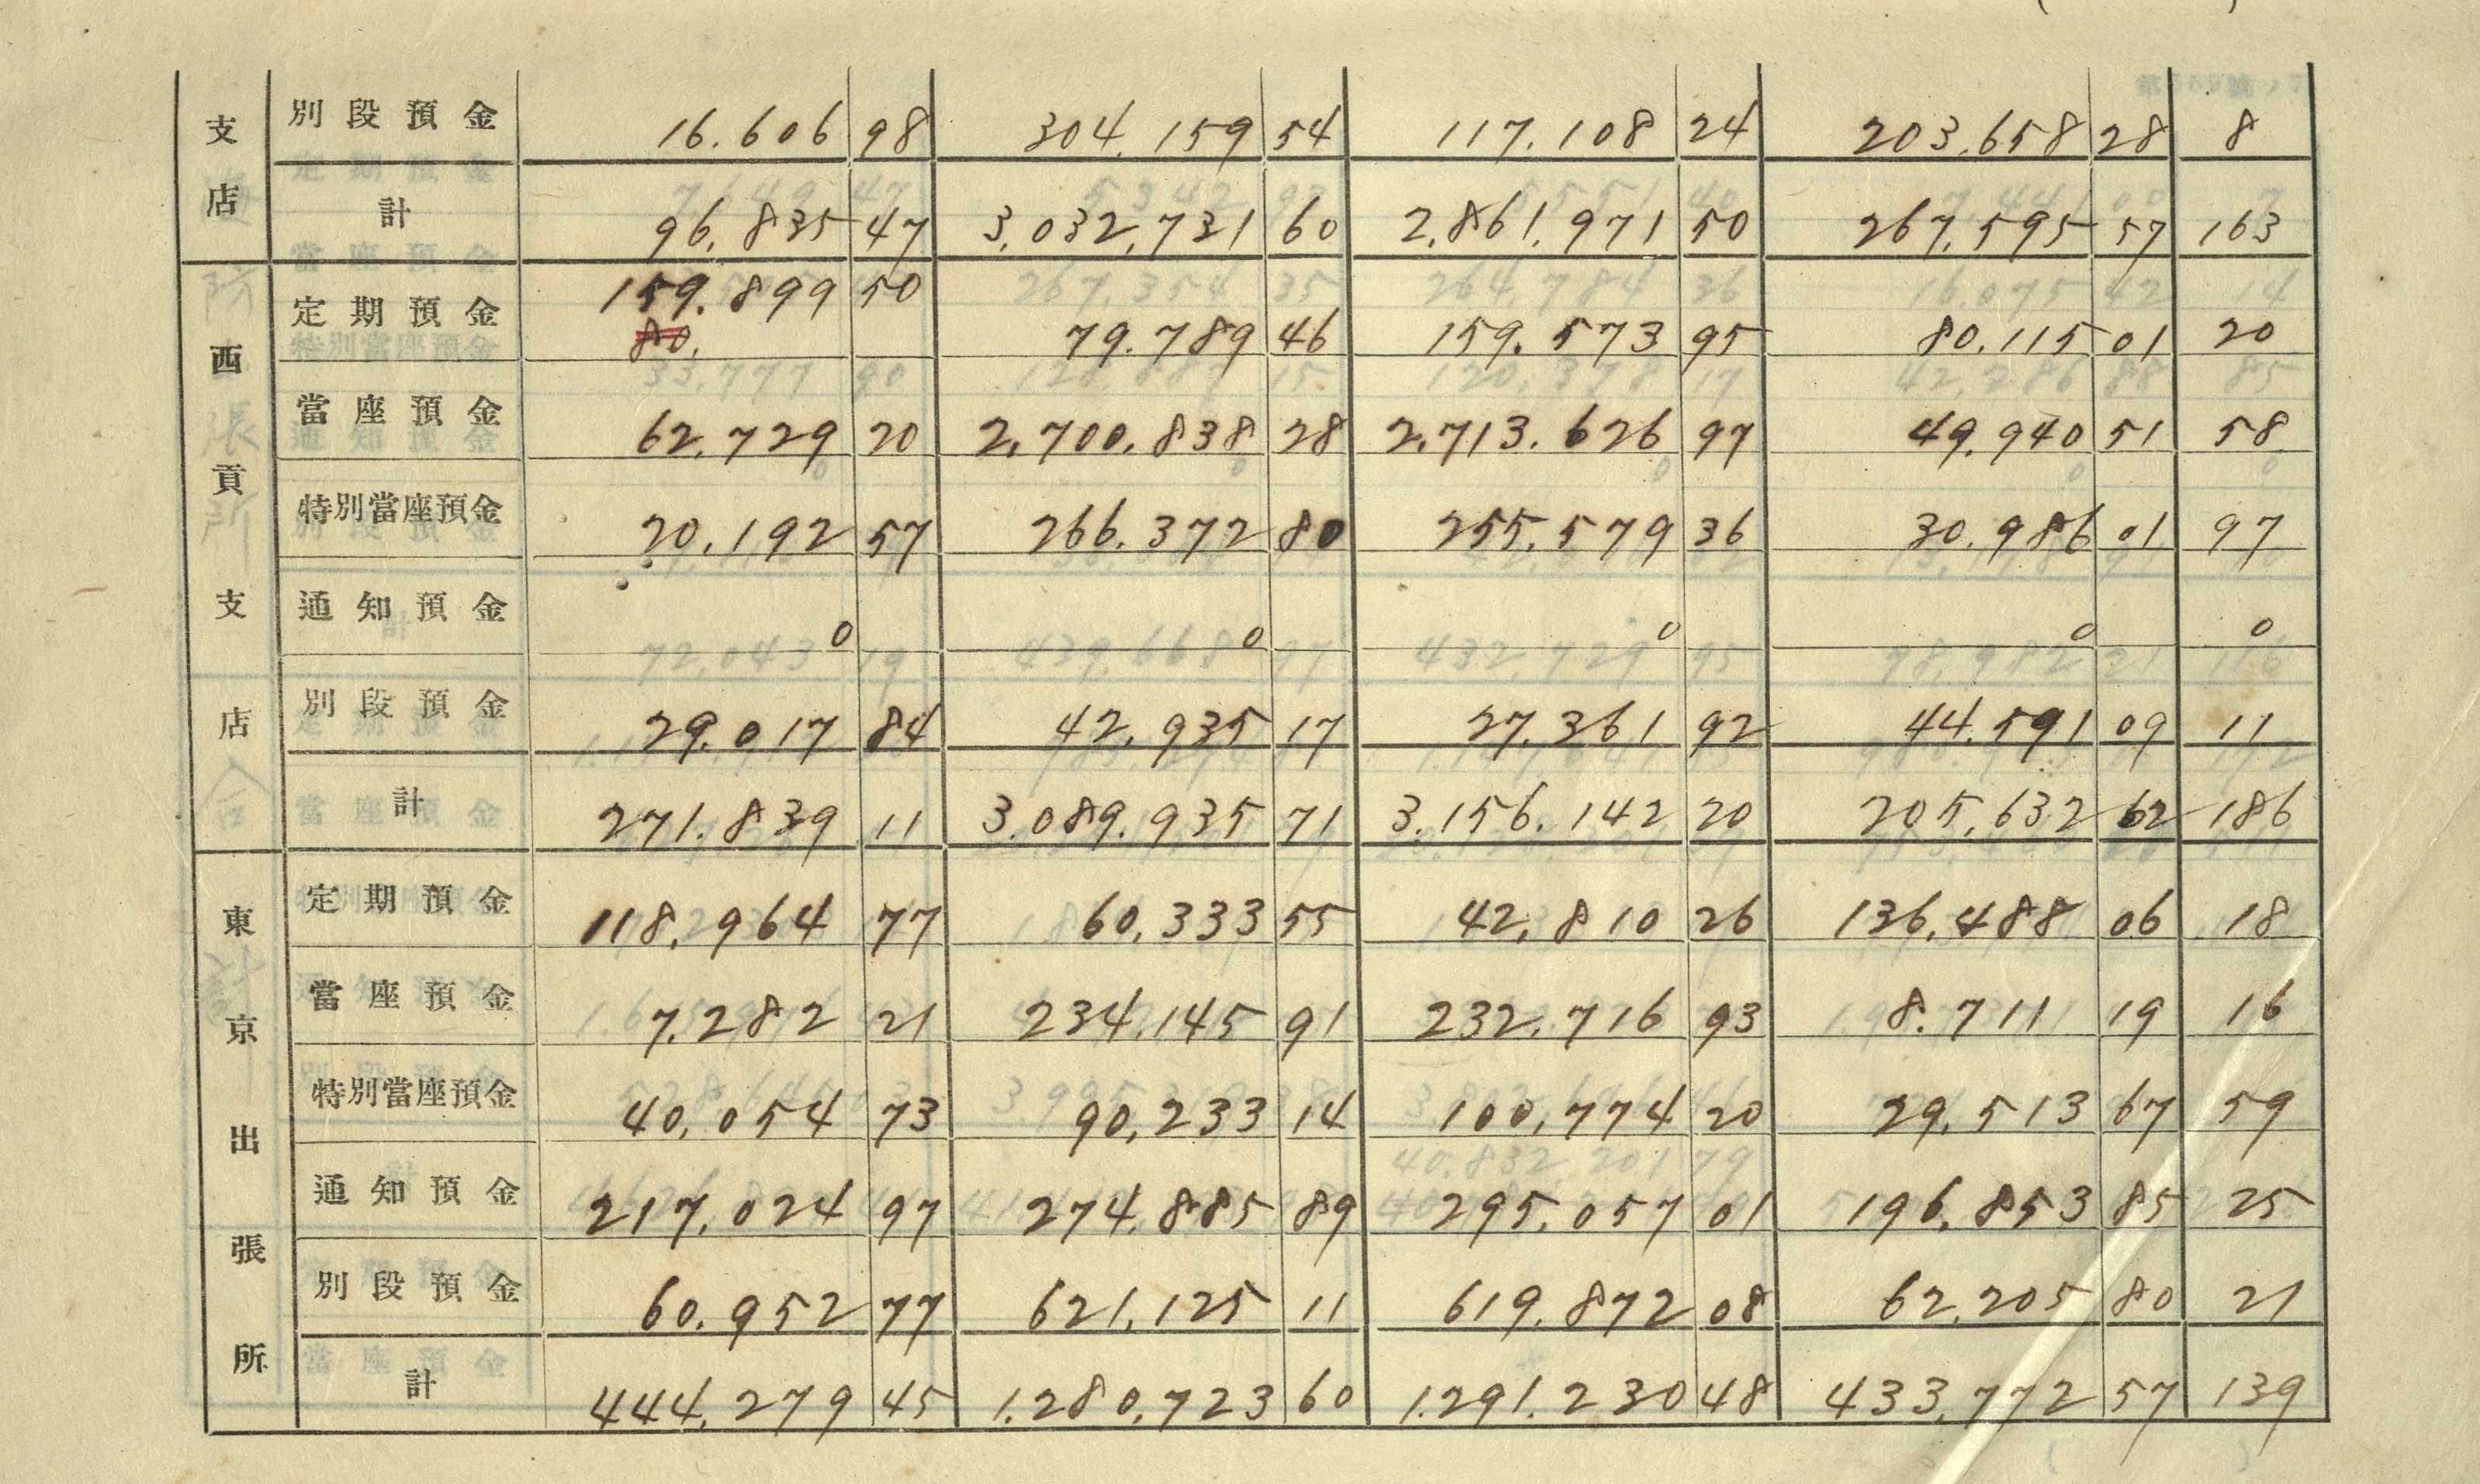 支店 別段預金 16.606 98 304.159 54 117.108 24 203.658 28 8
計 96.835 47 3.032.731 60 2.861.971 50 267.595 57 163
西貢支店 定期預金 159.899 50
80. 79.789 46 159.573 95 80.115 01 20
當座預金 62.729 20 2.700.838 28 2.713.626 97 49.940 51 58
特別當座預金 20.192 57 266.372 80 255.579 36 30.986 01 97
通知預金 0 0 0 0 0
別段預金 29.017 84 42.935 17 27.361 92 44.591 09 11
計 271.839 11 3.089.935 71 3.156.142 20 205.632 62 186
東京出張所 定期預金 118.964 77 60.333 55 42.810 26 136.488 06 18
當座預金 7.282 21 234.145 91 232.716 93 8.711 19 16
特別當座預金 40.054 73 90.233 14 100.774 20 29.513 67 59
通知預金 217.024 97 274.885 89 295.057 01 196.853 85 25
別段預金 60.952 77 621.125 11 619.872 08 62.205 80 21
計 444.279 45 1.280.723 60 1.291.230 48 433.772 57 139